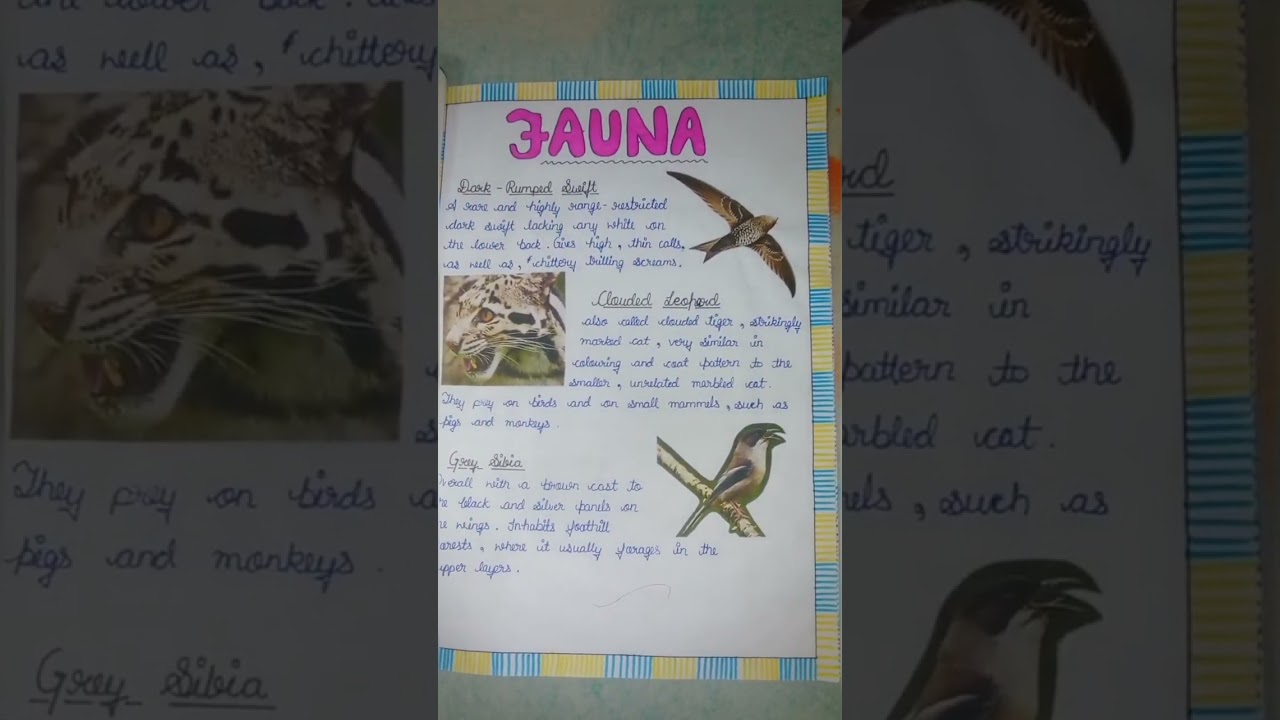 FAUNA
Dark - Rumped Swift
A rare and highly range-restricted
dark swift lacking any white on
the lower back. Gives high, thin calls,
as well as, 'chittery trilling screams.
Clouded Leopard
also called clouded tiger, strikingly
marked cat, very similar in
colouring and coat pattern to the
smaller, unrelated marbled cat.
They prey on birds and on small mammels, such as
pigs and monkeys.
Grey Sibia
verall with a brown cast to
re black and silver panels on
e wings. Inhabits foothill
orests, where it usually forages in the
upper layers.